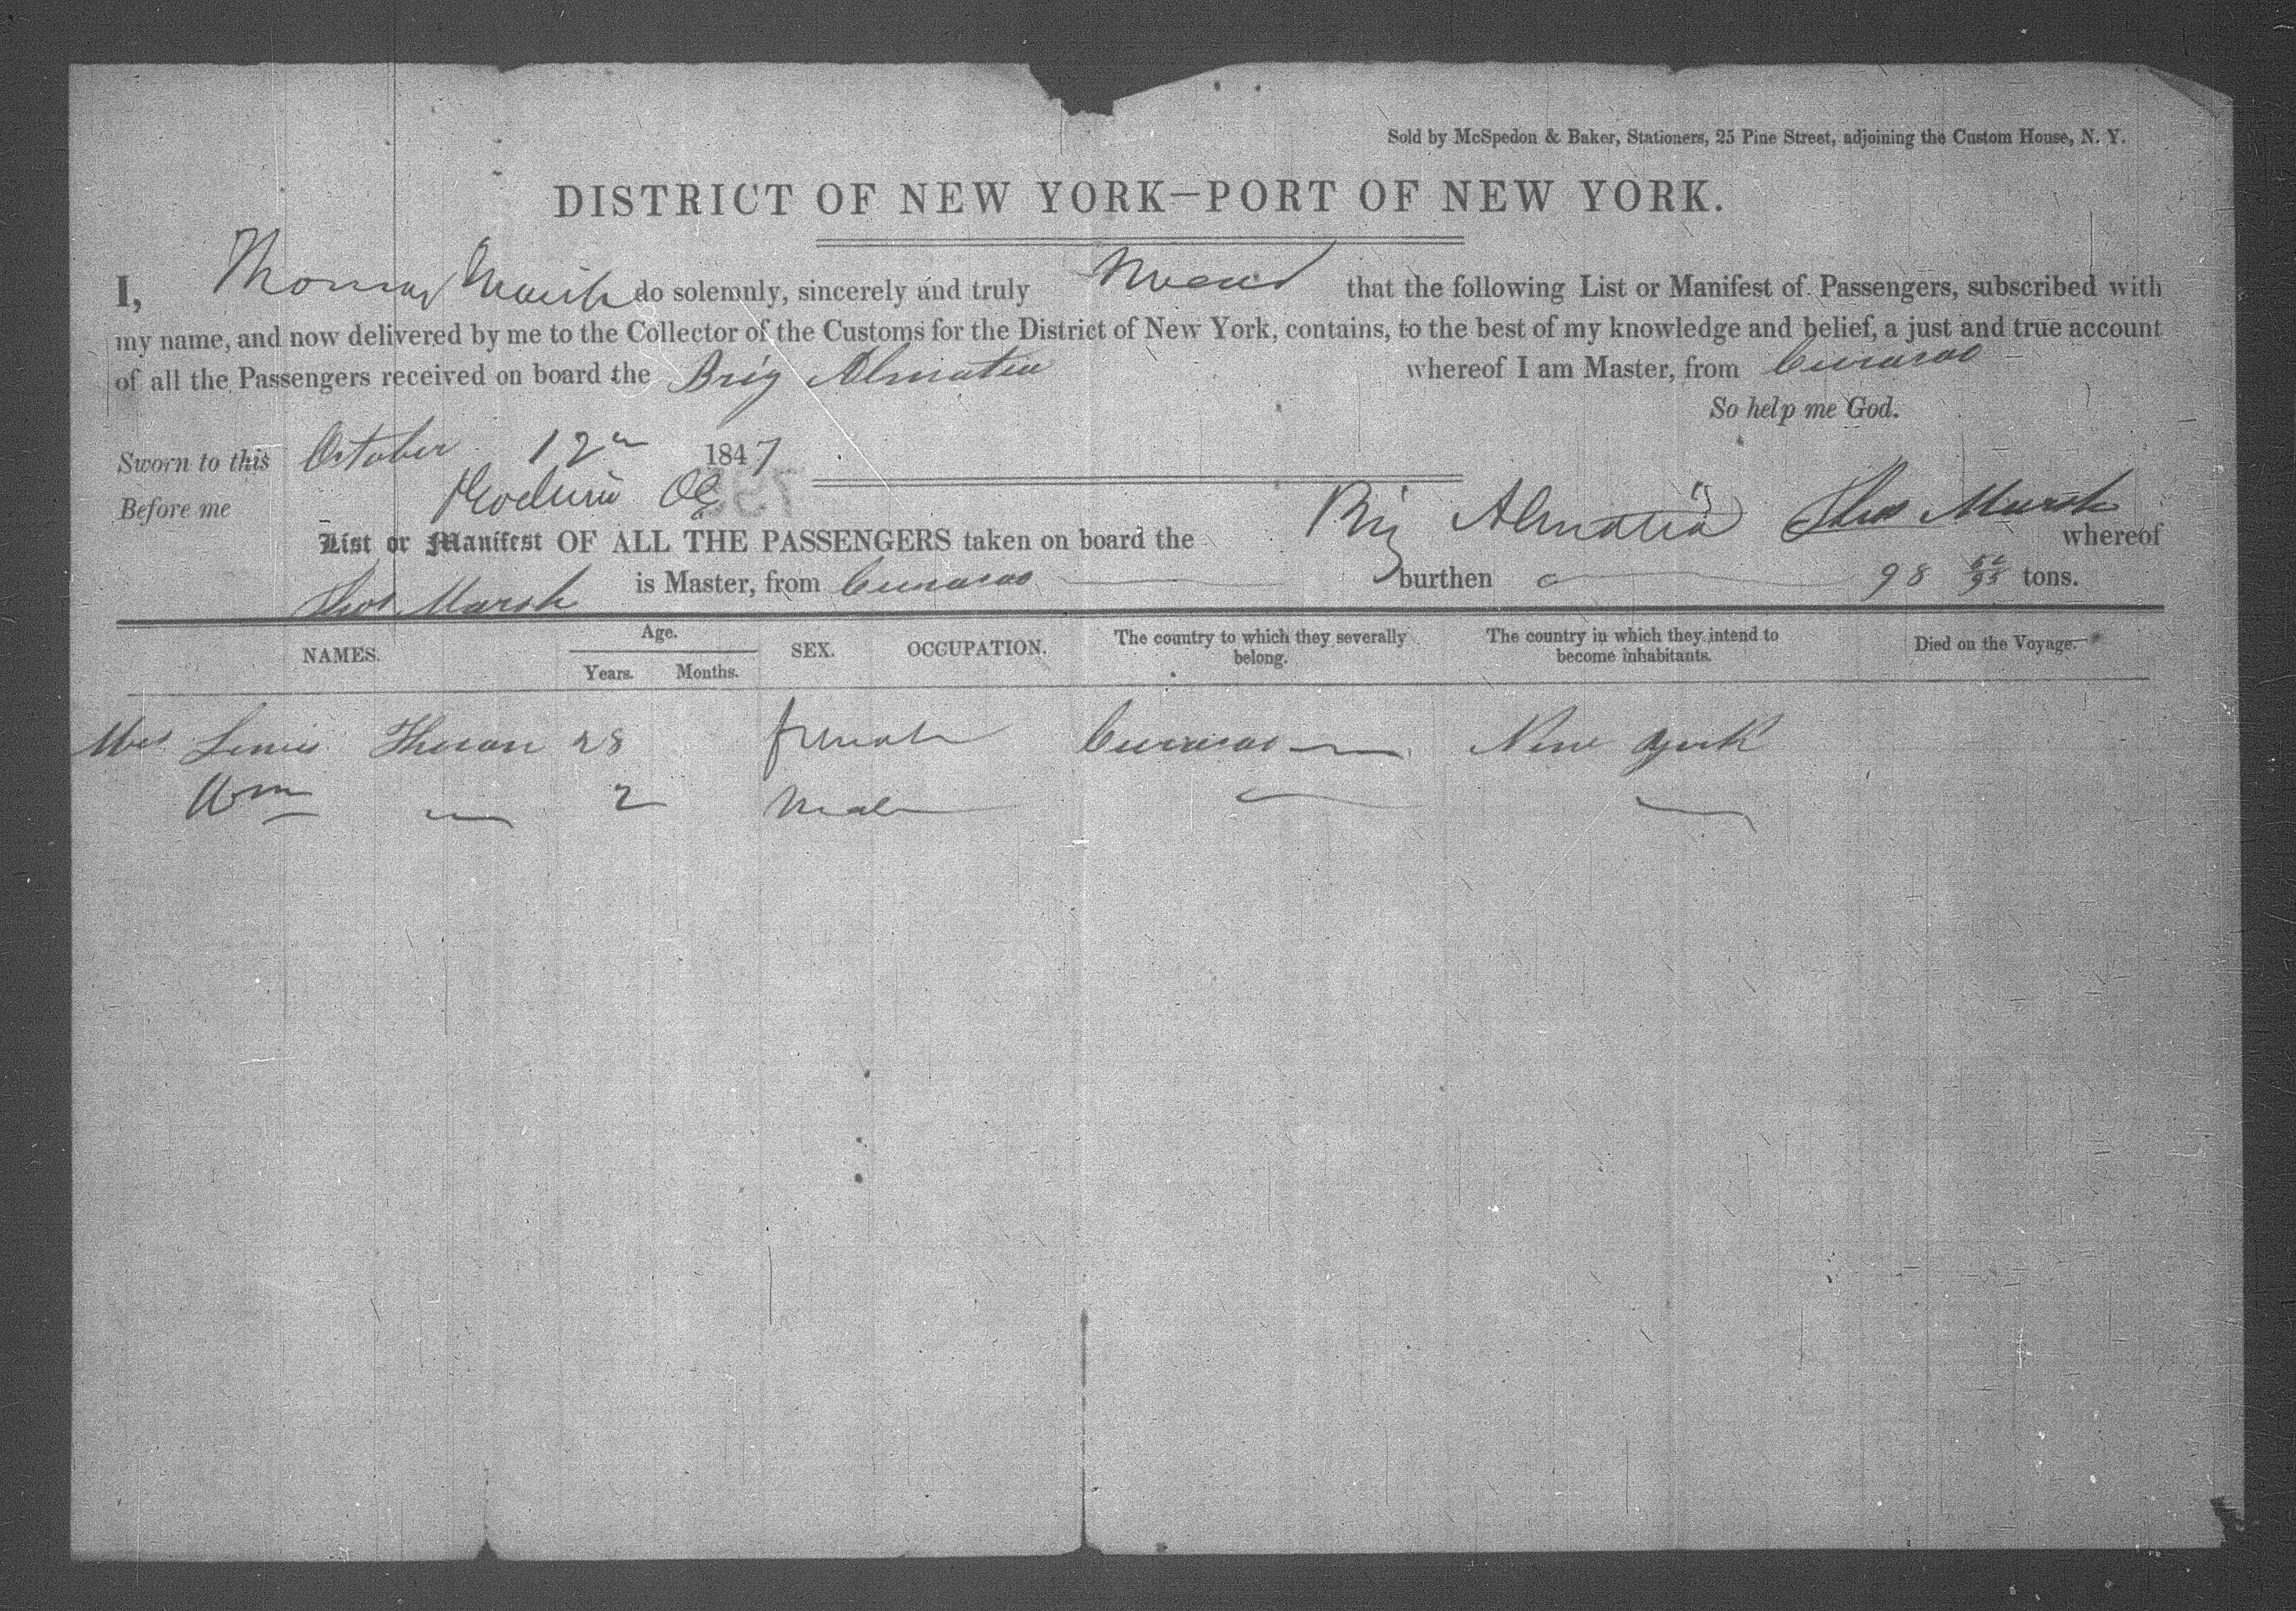 Sold by McSpedon & Baker, Stationers, 25 Pine Street, adjoining the Custom House, N. Y.
DISTRICT OF NEW YORK—PORT OF NEW YORK.
I, Thomas Marsh do solemnly, sincerely and truly Swear that the following List or Manifest of Passengers, subscribed with
my name, and now delivered by me to the Collector of the Customs for the District of New York, contains, to the best of my knowledge and belief, a just and true account
of all the Passengers received on board the Brig Almatia whereof I am Master, from Curacao
So help me God.
Sworn to this October 12th 1847
Before me
Thos Marsh
List or Manifest OF ALL THE PASSENGERS taken on board the Brig Almatia whereof
Thos Marsh is Master, from Curacao burthen 98 tons.
NAMES. Age. SEX. OCCUPATION. The country to which they severally belong. The country in which they intend to become inhabitants. Died on the Voyage.
Years. Months.
Mrs 28 female Curacao New York
Wm 2 Male